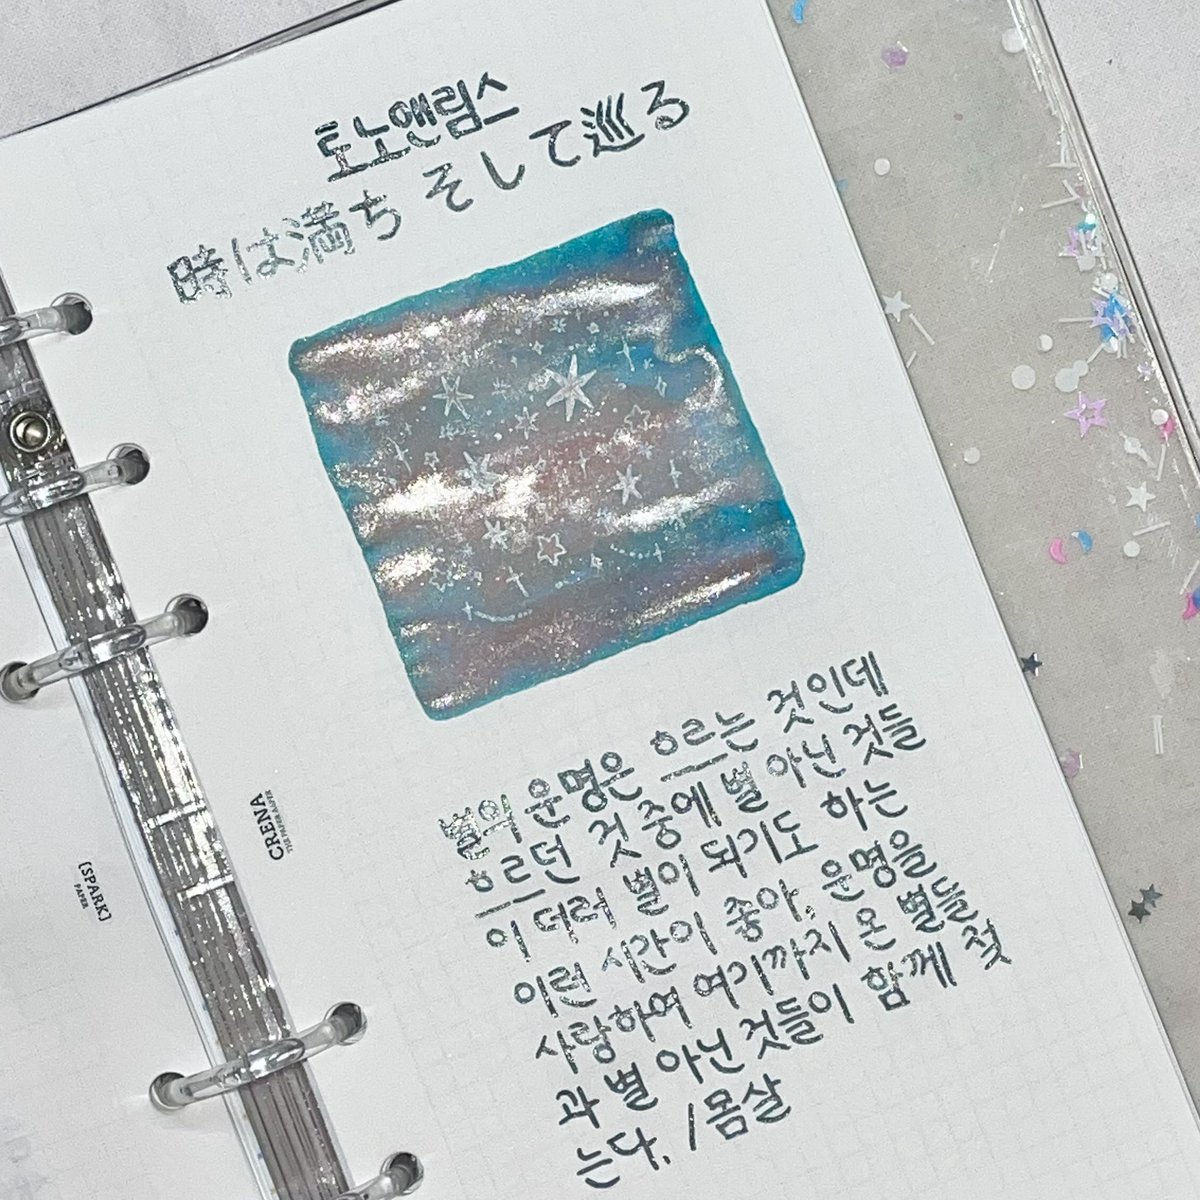 토노앤림스
時は満ち そして巡る
별의 운명은 흐르는 것인데
흐르던 것 중에 별 아닌 것들
이 더러 별이 되기도 하는
이런 시간이 좋아. 운명을
사랑하여 여기까지 온 별들
과 별 아닌 것들이 함께 젖
는다. /몸살
CRENA
THE PAPER PAPER
[SPARK]
PAPER